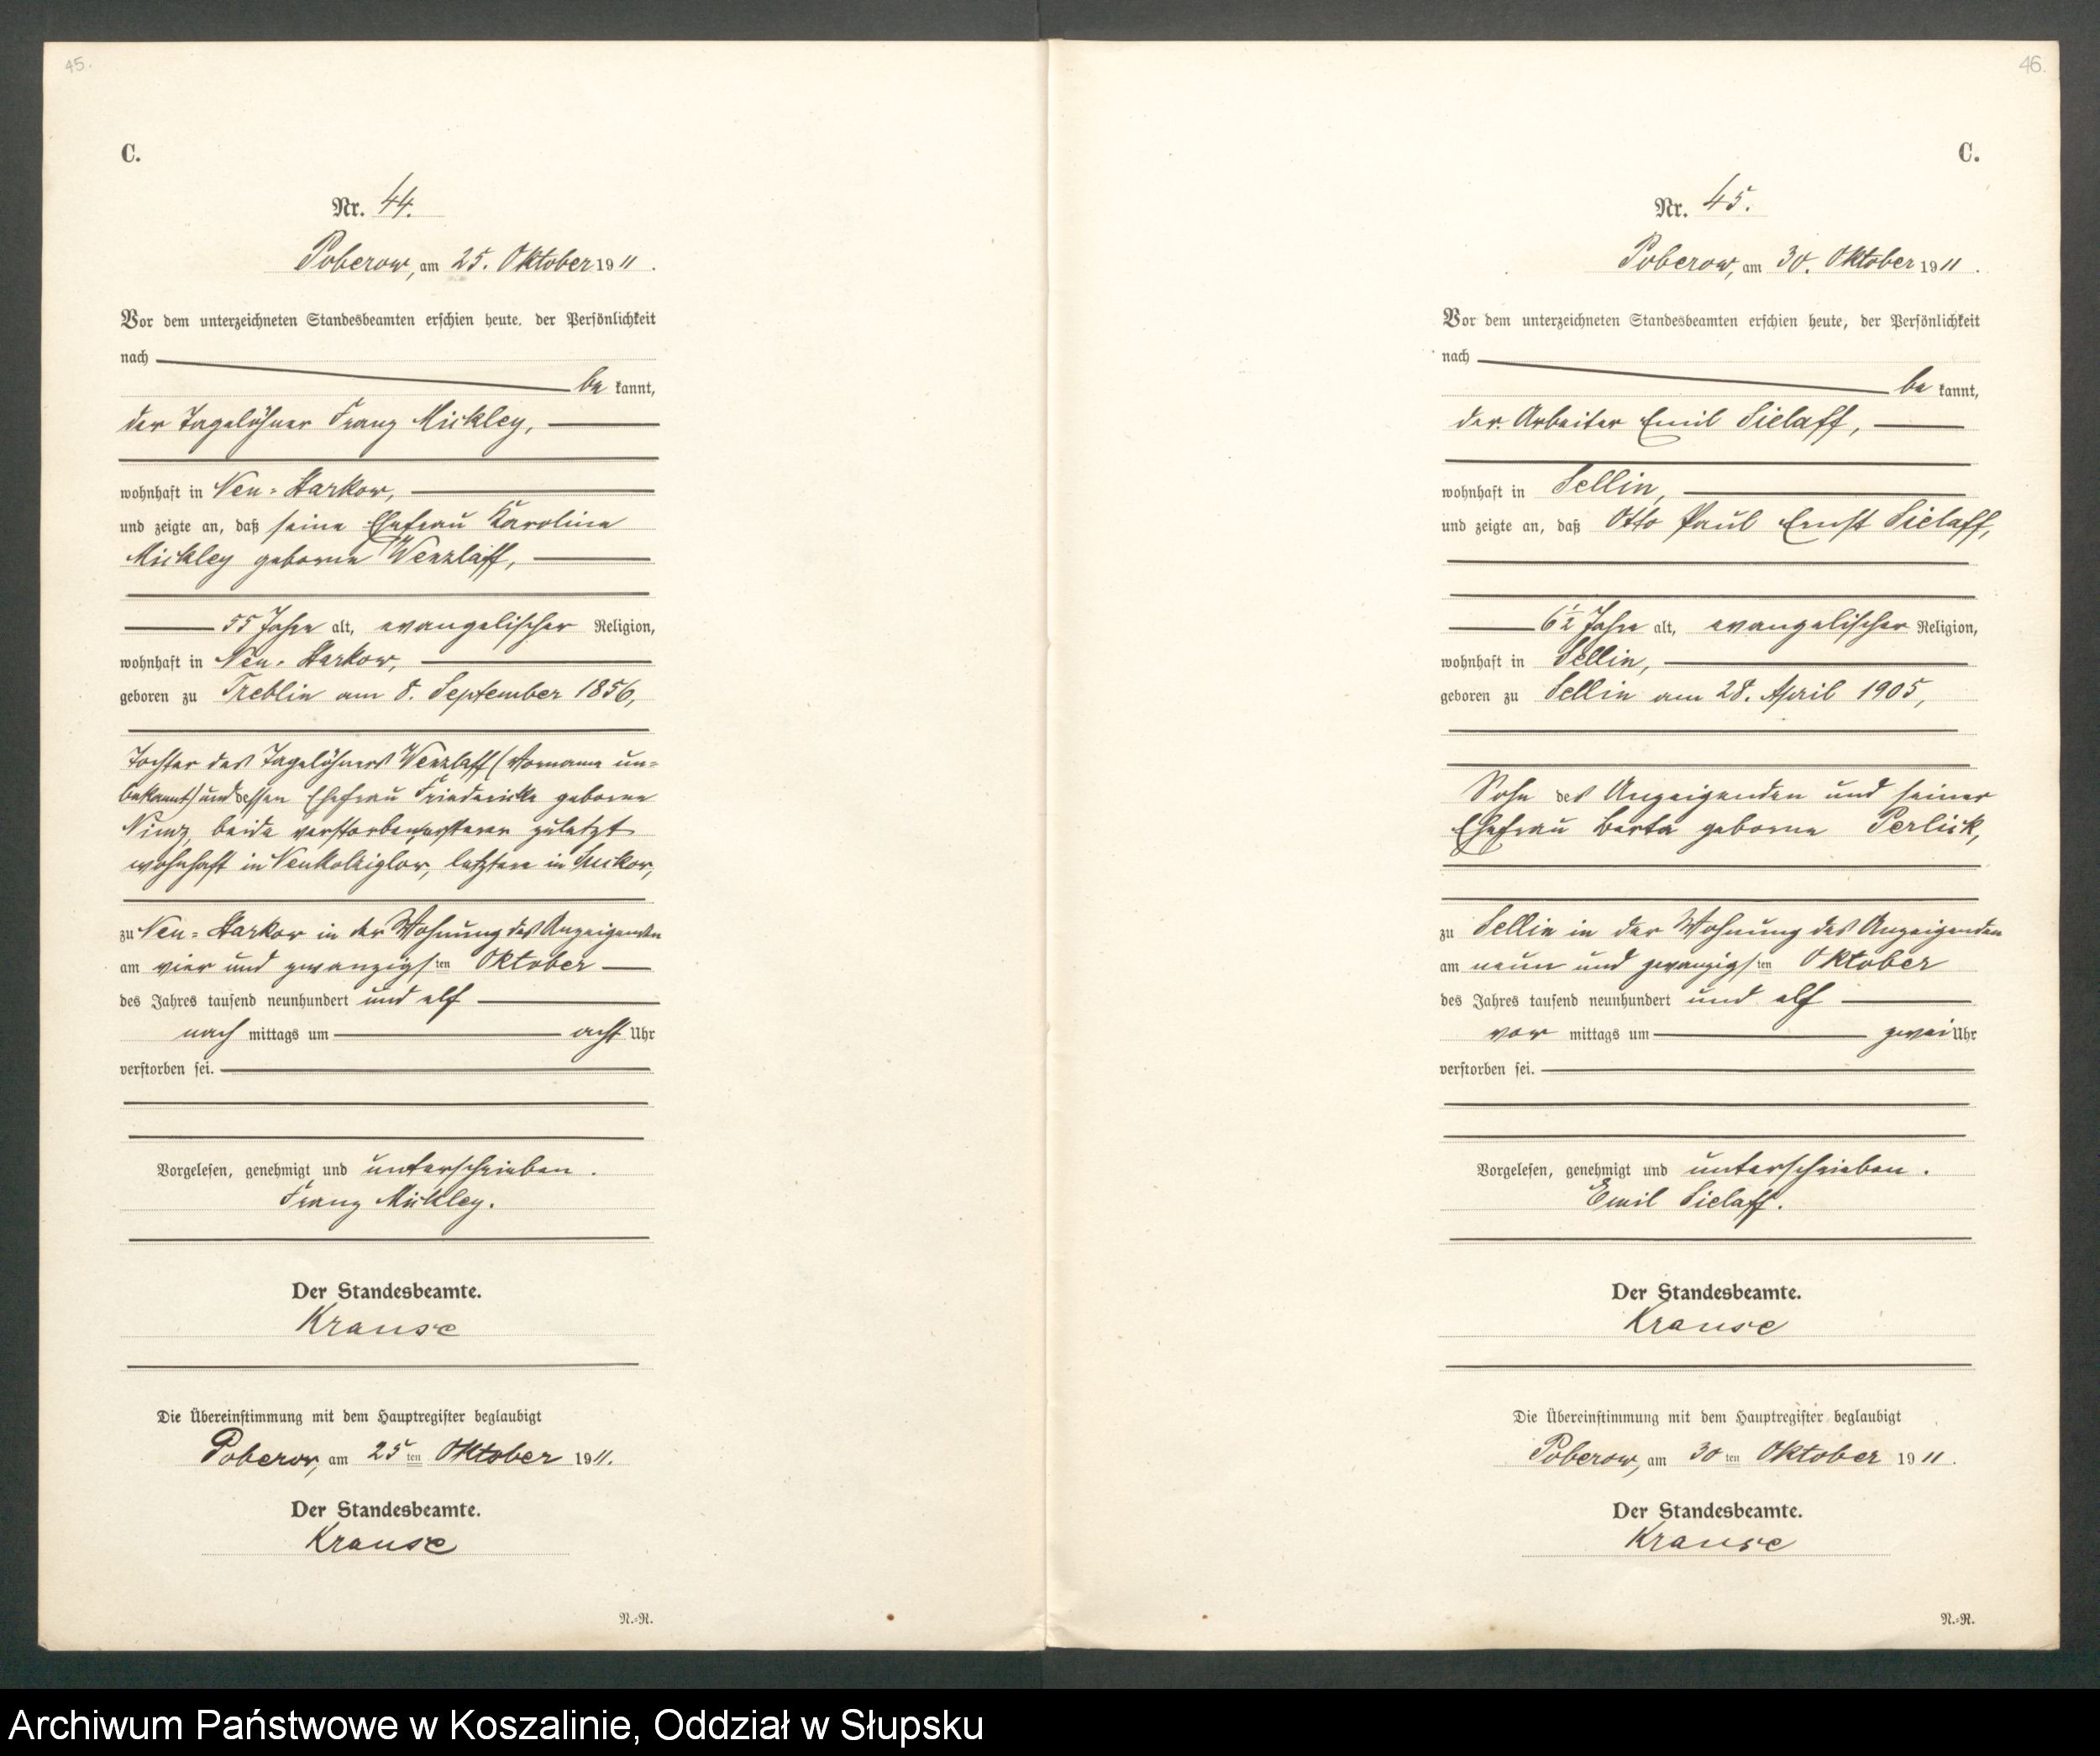 45.
C.
Nr. 44.
Poberow, am 25. Oktober 1911.
Vor dem unterzeichneten Standesbeamten erschien heute, der Persönlichkeit
nach
be kannt,
der Tagelöhner Franz Mickley,
wohnhaft in Neu-Starkow,
und zeigte an, daß seine Ehefrau Karoline
Mickley geborne Wenzlaff,
55 Jahre alt, evangelischer Religion,
wohnhaft in Neu-Starkow,
geboren zu Treblin am 8. September 1856,
Tochter des Tagelöhners Wenzlaff (Vorname un-
bekannt) und dessen Ehefrau Friedericke geborne
Nimz, beide verstorben, ersterer zuletzt
wohnhaft in Neukolziglow, letztere in Suckow,
zu Neu-Starkow in der Wohnung des Anzeigenden
am vier und zwanzigsten Oktober
des Jahres tausend neunhundert und elf
nach mittags um acht Uhr
verstorben sei.
Vorgelesen, genehmigt und unterschrieben.
Franz Mickley.
Der Standesbeamte.
Krause
Die Übereinstimmung mit dem Hauptregister beglaubigt
Poberow, am 25ten Oktober 1911.
Der Standesbeamte.
Krause
N.-R.
46.
C.
Nr. 45.
Poberow, am 30. Oktober 1911.
Vor dem unterzeichneten Standesbeamten erschien heute, der Persönlichkeit
nach
be kannt,
der Arbeiter Emil Sielaff,
wohnhaft in Sellin,
und zeigte an, daß Otto Paul Ernst Sielaff,
6½ Jahre alt, evangelischer Religion,
wohnhaft in Sellin,
geboren zu Sellin am 28. April 1905,
Sohn des Anzeigenden und seiner
Ehefrau Berta geborne Perlick,
zu Sellin in der Wohnung des Anzeigenden
am neun und zwanzigsten Oktober
des Jahres tausend neunhundert und elf
vor mittags um zwei Uhr
verstorben sei.
Vorgelesen, genehmigt und unterschrieben.
Emil Sielaff.
Der Standesbeamte.
Krause
Die Übereinstimmung mit dem Hauptregister beglaubigt
Poberow, am 30ten Oktober 1911.
Der Standesbeamte.
Krause
N.-R.
Archiwum Państwowe w Koszalinie, Oddział w Słupsku